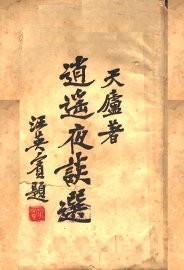 天廬著
逍遙夜談選
汪英賓題